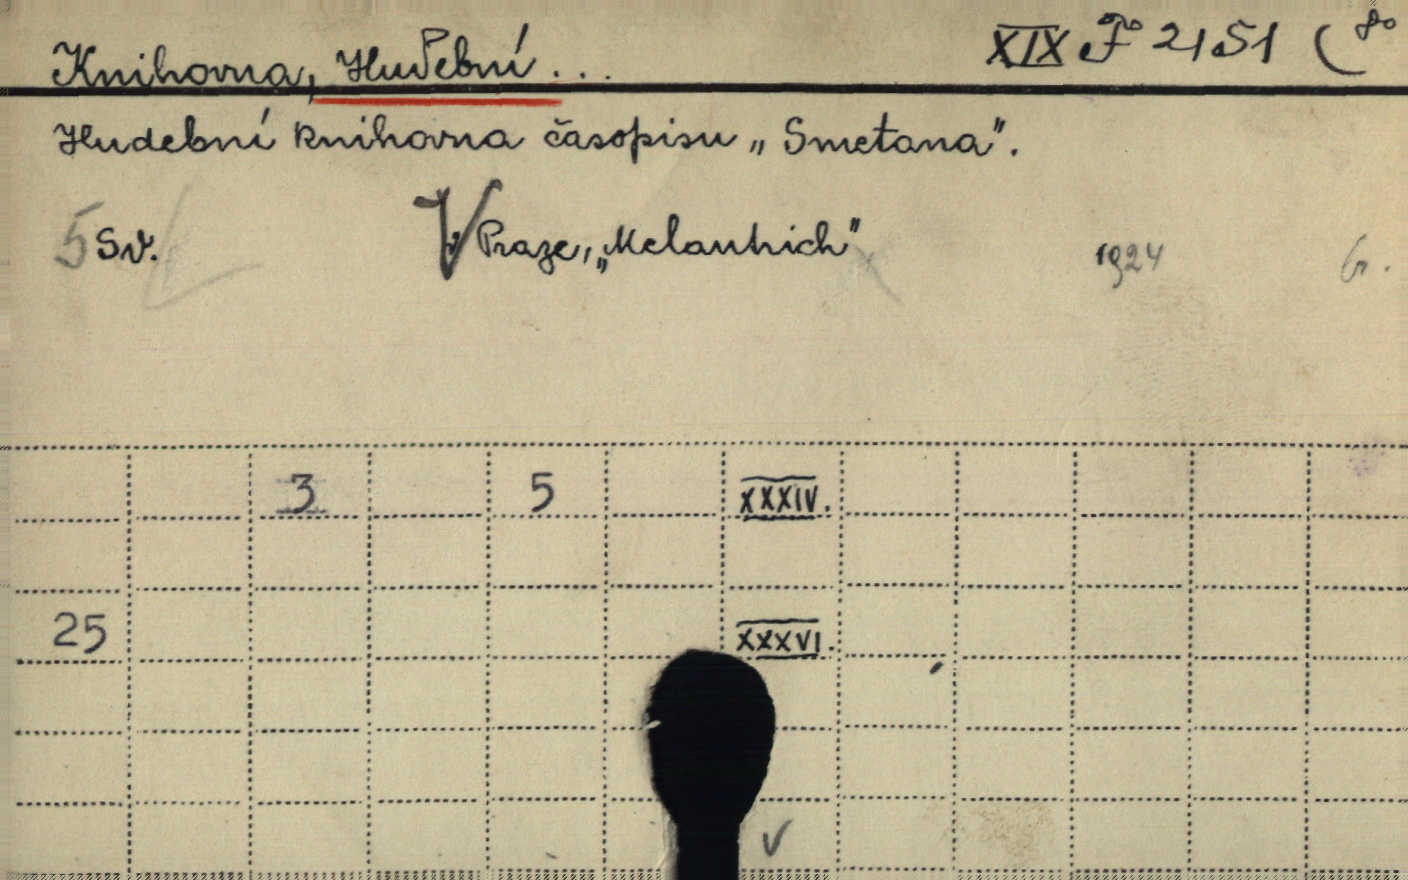 Knihovna, Hudební...
XIX F 2151 (8o
Hudební knihovna časopisu „Smetana".
5 Sv. V Praze, „Melantrich" 1924
3 5 XXXIV.
25 XXXVI.